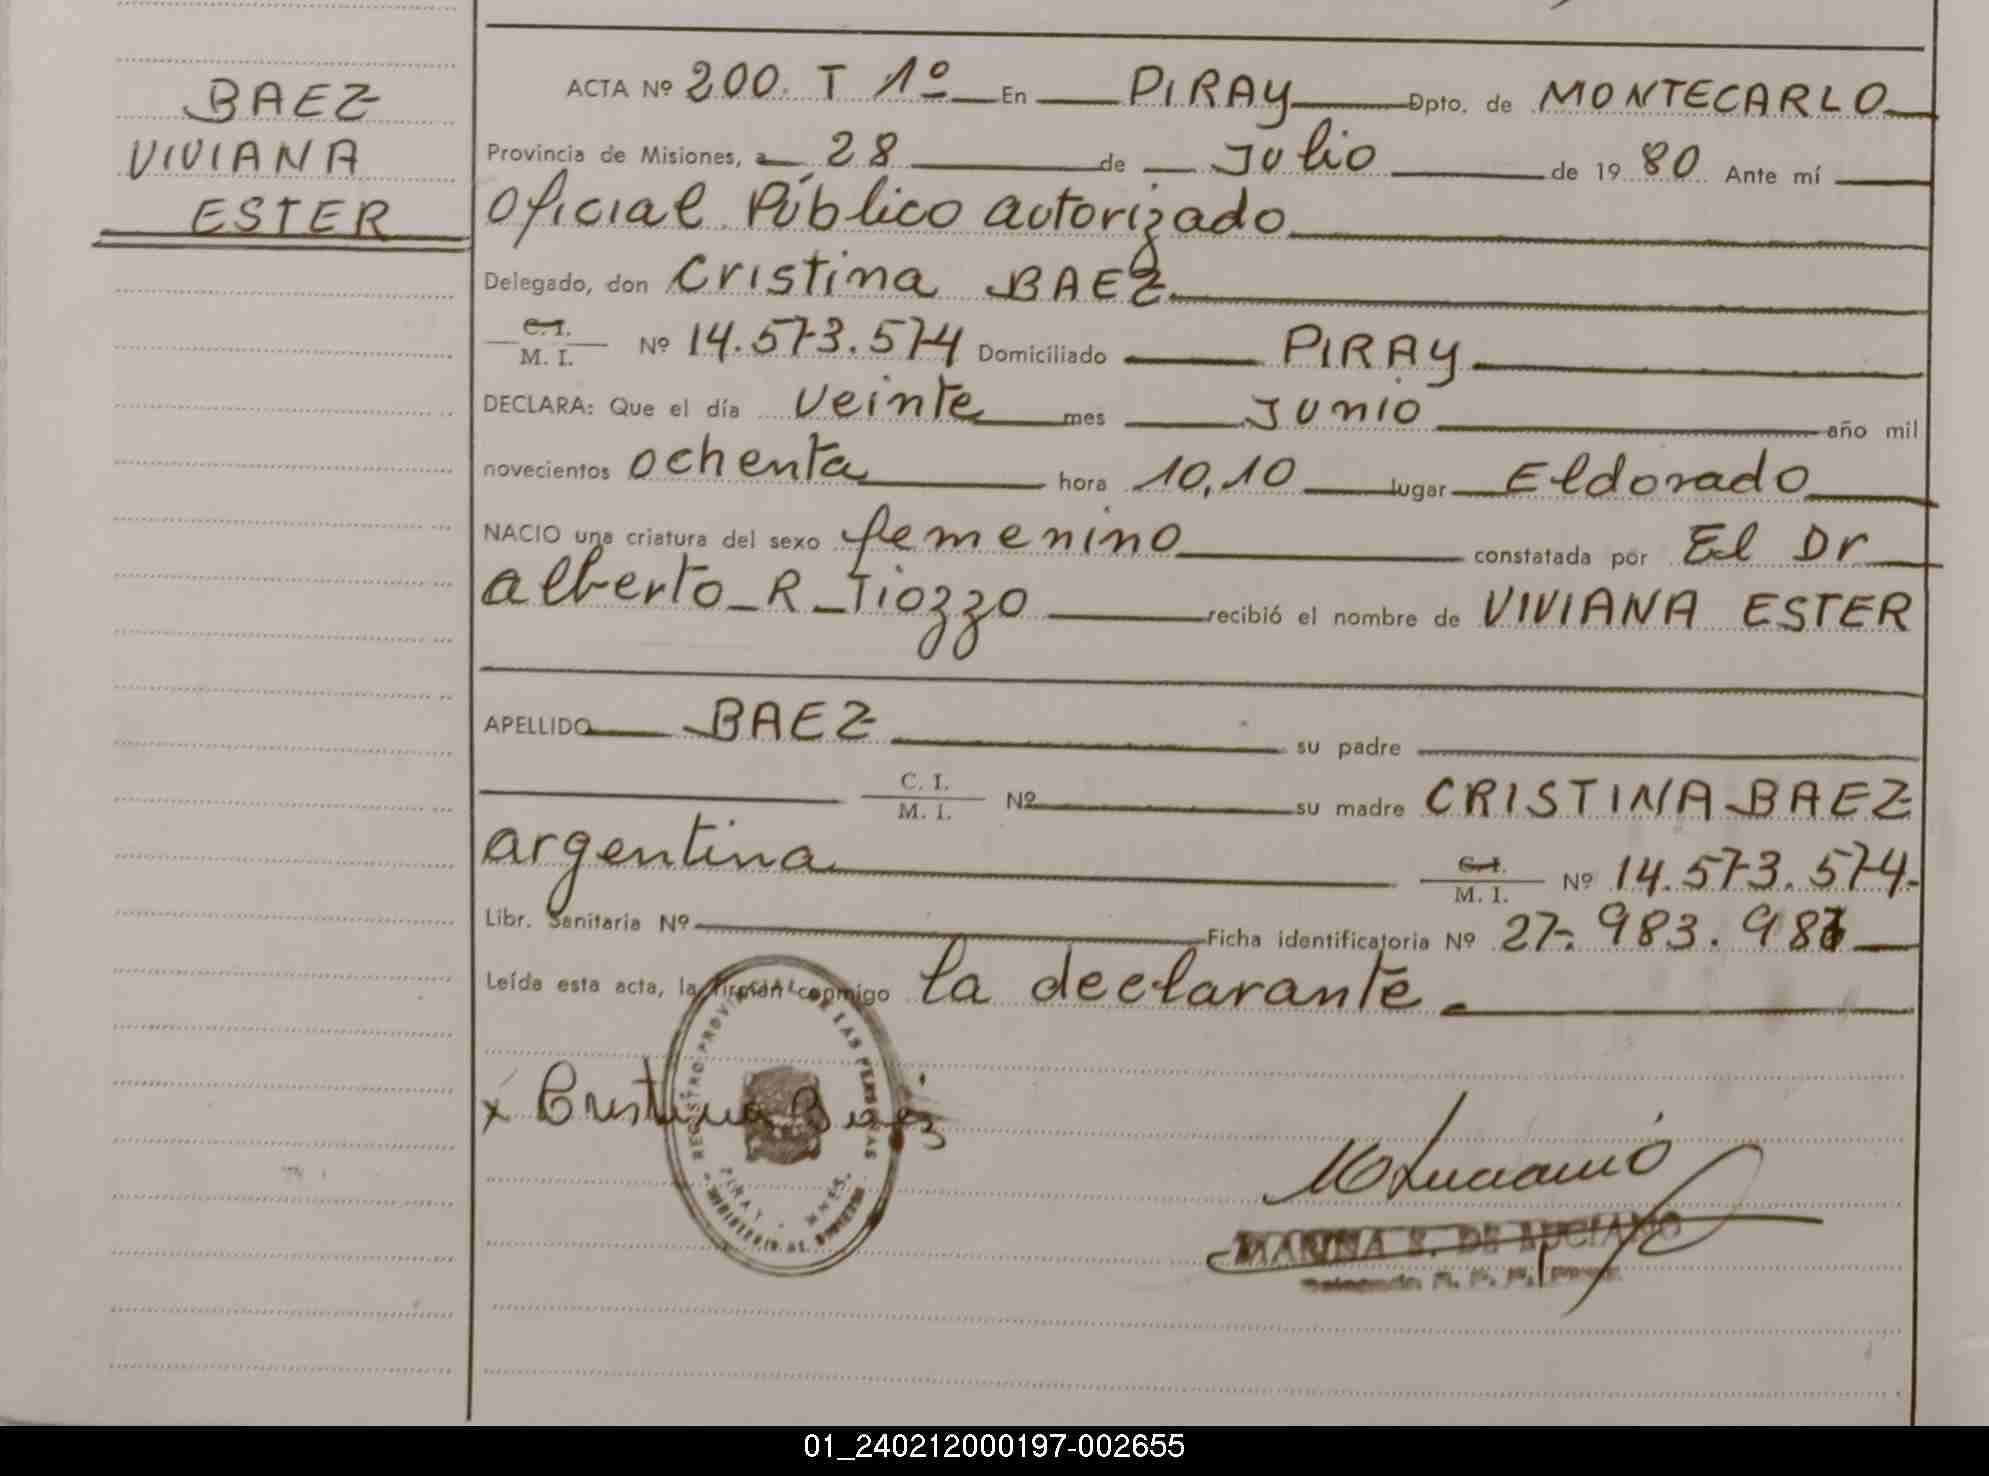 BAEZ
VIVIANA
ESTER
ACTA Nº 200. T 1º En PIRAY Dpto. de MONTECARLO
Provincia de Misiones, a 28 de Julio de 19 80 Ante mí
Oficial Público autorizado
Delegado, don Cristina BAEZ
C. I.
M. I. Nº 14.573.574 Domiciliado PIRAY
DECLARA: Que el día veinte mes Junio año mil
novecientos ochenta hora 10,10 lugar Eldorado
NACIO una criatura del sexo femenino constatada por El Dr
Alberto R Tiozzo recibió el nombre de VIVIANA ESTER
APELLIDO BAEZ su padre
C. I.
M. I. Nº su madre CRISTINA BAEZ
argentina C. I.
M. I. Nº 14.573.574.
Libr. Sanitaria Nº Ficha identificatoria Nº 27.983.98
Leída esta acta, la firman conmigo la declarante.
x Cristina Baez
REGISTRO PROVINCIAL DE LAS PERSONAS
PIRAY - MNES.
MLuciano
MARINA E. DE LUCIANO
01_240212000197-002655